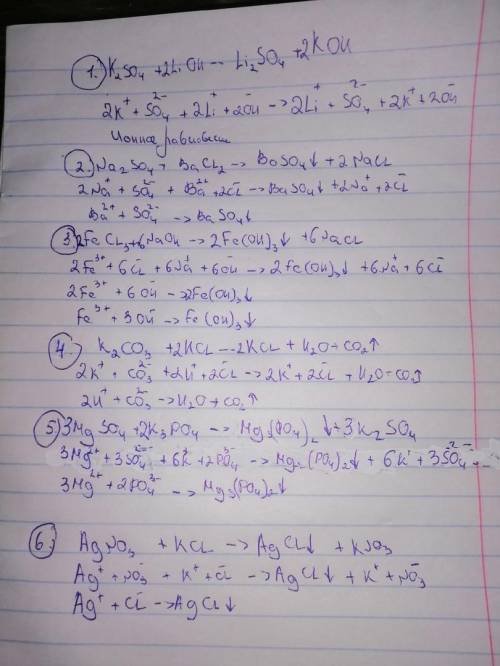 1. K₂SO₄ + 2LiOH -- Li₂SO₄ + 2KOH
2K⁺ + SO₄²⁻ + 2Li⁺ + 2OH⁻ → 2Li⁺ + SO₄²⁻ + 2K⁺ + 2OH⁻
2. Na₂SO₄ + BaCl₂ → BaSO₄↓ + 2NaCl
2Na⁺ + SO₄²⁻ + Ba²⁺ + 2Cl⁻ → BaSO₄↓ + 2Na⁺ + 2Cl⁻
Ba²⁺ + SO₄²⁻ → BaSO₄↓
3. 2FeCl₃ + 6NaOH → 2Fe(OH)₃↓ + 6NaCl
2Fe³⁺ + 6Cl⁻ + 6Na⁺ + 6OH⁻ → 2Fe(OH)₃↓ + 6Na⁺ + 6Cl⁻
2Fe³⁺ + 6OH⁻ → 2Fe(OH)₃↓
Fe³⁺ + 3OH⁻ → Fe(OH)₃↓
4. K₂CO₃ + 2HCl -- 2KCl + H₂O + CO₂↑
2K⁺ + CO₃²⁻ + 2H⁺ + 2Cl⁻ → 2K⁺ + 2Cl⁻ + H₂O + CO₂↑
2H⁺ + CO₃²⁻ → H₂O + CO₂↑
5. 3MgSO₄ + 2K₃PO₄ → Mg₃(PO₄)₂↓ + 3K₂SO₄
3Mg²⁺ + 3SO₄²⁻ + 6K⁺ + 2PO₄³⁻ → Mg₃(PO₄)₂↓ + 6K⁺ + 3SO₄²⁻
3Mg²⁺ + 2PO₄³⁻ → Mg₃(PO₄)₂↓
6. AgNO₃ + KCl → AgCl↓ + KNO₃
Ag⁺ + NO₃⁻ + K⁺ + Cl⁻ → AgCl↓ + K⁺ + NO₃⁻
Ag⁺ + Cl⁻ → AgCl↓